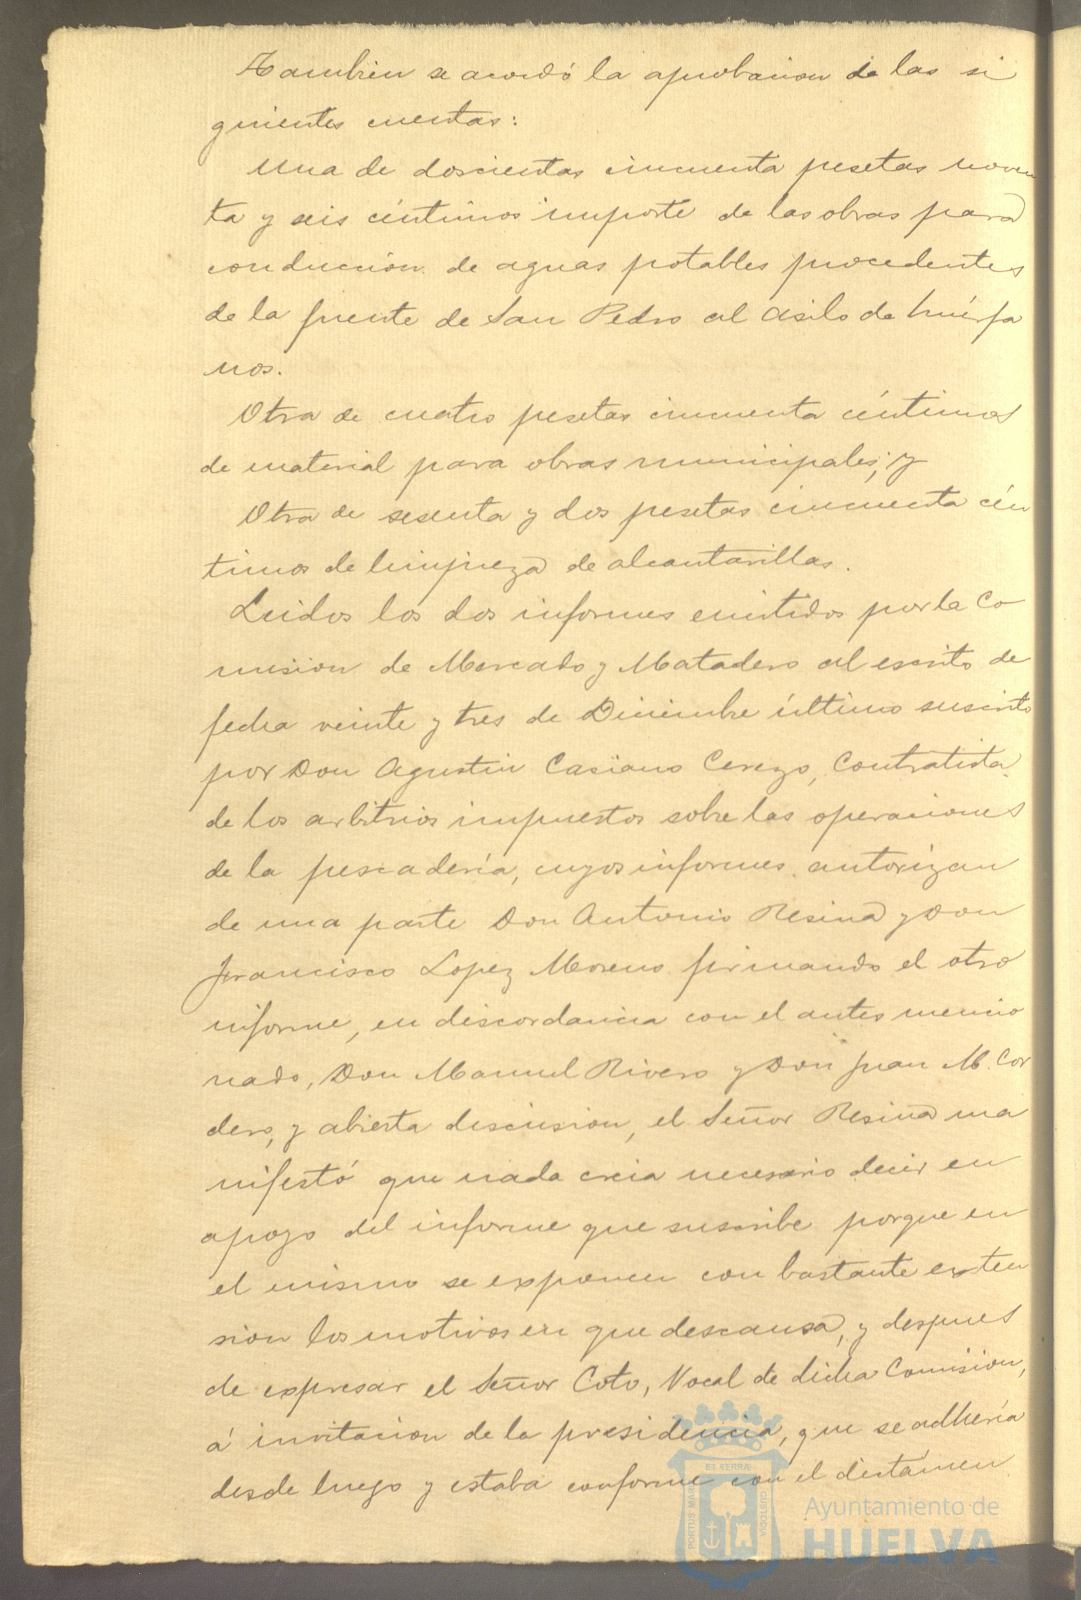 Tambien se acordó la aprobacion de las si
guientes cuentas:
Una de doscientas cincuenta pesetas noven
ta y seis céntimos importe de las obras para
conduccion de aguas potables procedentes
de la fuente de San Pedro al Asilo de huérfa
nos.
Otra de cuatro pesetas cincuenta céntimos
de material para obras municipales; y
Otra de sesenta y dos pesetas cincuenta cén
timos de limpieza de alcantarillas.
Leidos los dos informes emitidos por la Co
mision de Mercado y Matadero al escrito de
fecha veinte y tres de Diciembre último suscrito
por Don Agustin Casiano Cerezo, Contratista
de los arbitrios impuestos sobre las operaciones
de la pescadería, cuyos informes autorizan
de una parte Don Antonio Resina y Don
Francisco Lopez Moreno firmando el otro
informe, en discordancia con el antes mencio
nado, Don Manuel Rivero y Don Juan M. Cor
dero, y abierta discusion, el Señor Resina ma
nifestó que nada creia necesario decir en
apoyo del informe que suscribe porque en
el mismo se exponen con bastante exten
sion los motivos en que descansa, y despues
de expresar el Señor Coto, Vocal de dicha Comision,
á invitacion de la presidencia, que se adhería
desde luego y estaba conforme con el dictámen
PORTUS MARIS
ET TERRÆ
CUSTODIA
Ayuntamiento de
HUELVA